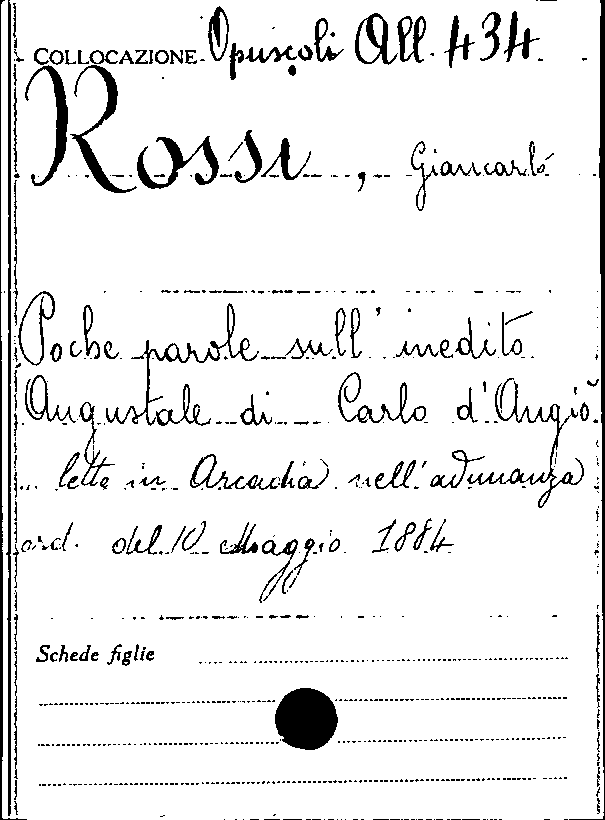 COLLOCAZIONE Opuscoli All. 434.
Rossi, Giancarlo
Poche parole sull' inedito
Augustale di Carlo d'Angiò
... lette in Arcadia nell'adunanza
ord. del 10 Maggio 1884
Schede figlie